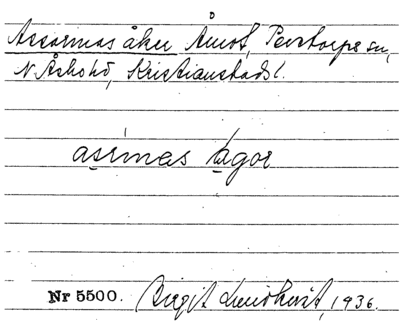 D
Assarmas åker Åmot, Perstorps sn,
N Åsbohd, Kristianstads l.
asrmas ågor
Nr 5500. Birgit Lundkvist, 1936.